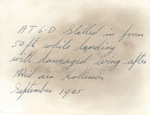 AT6D Stalled in from
50ft while landing
with damaged wing after
Mid air collision
September 1945